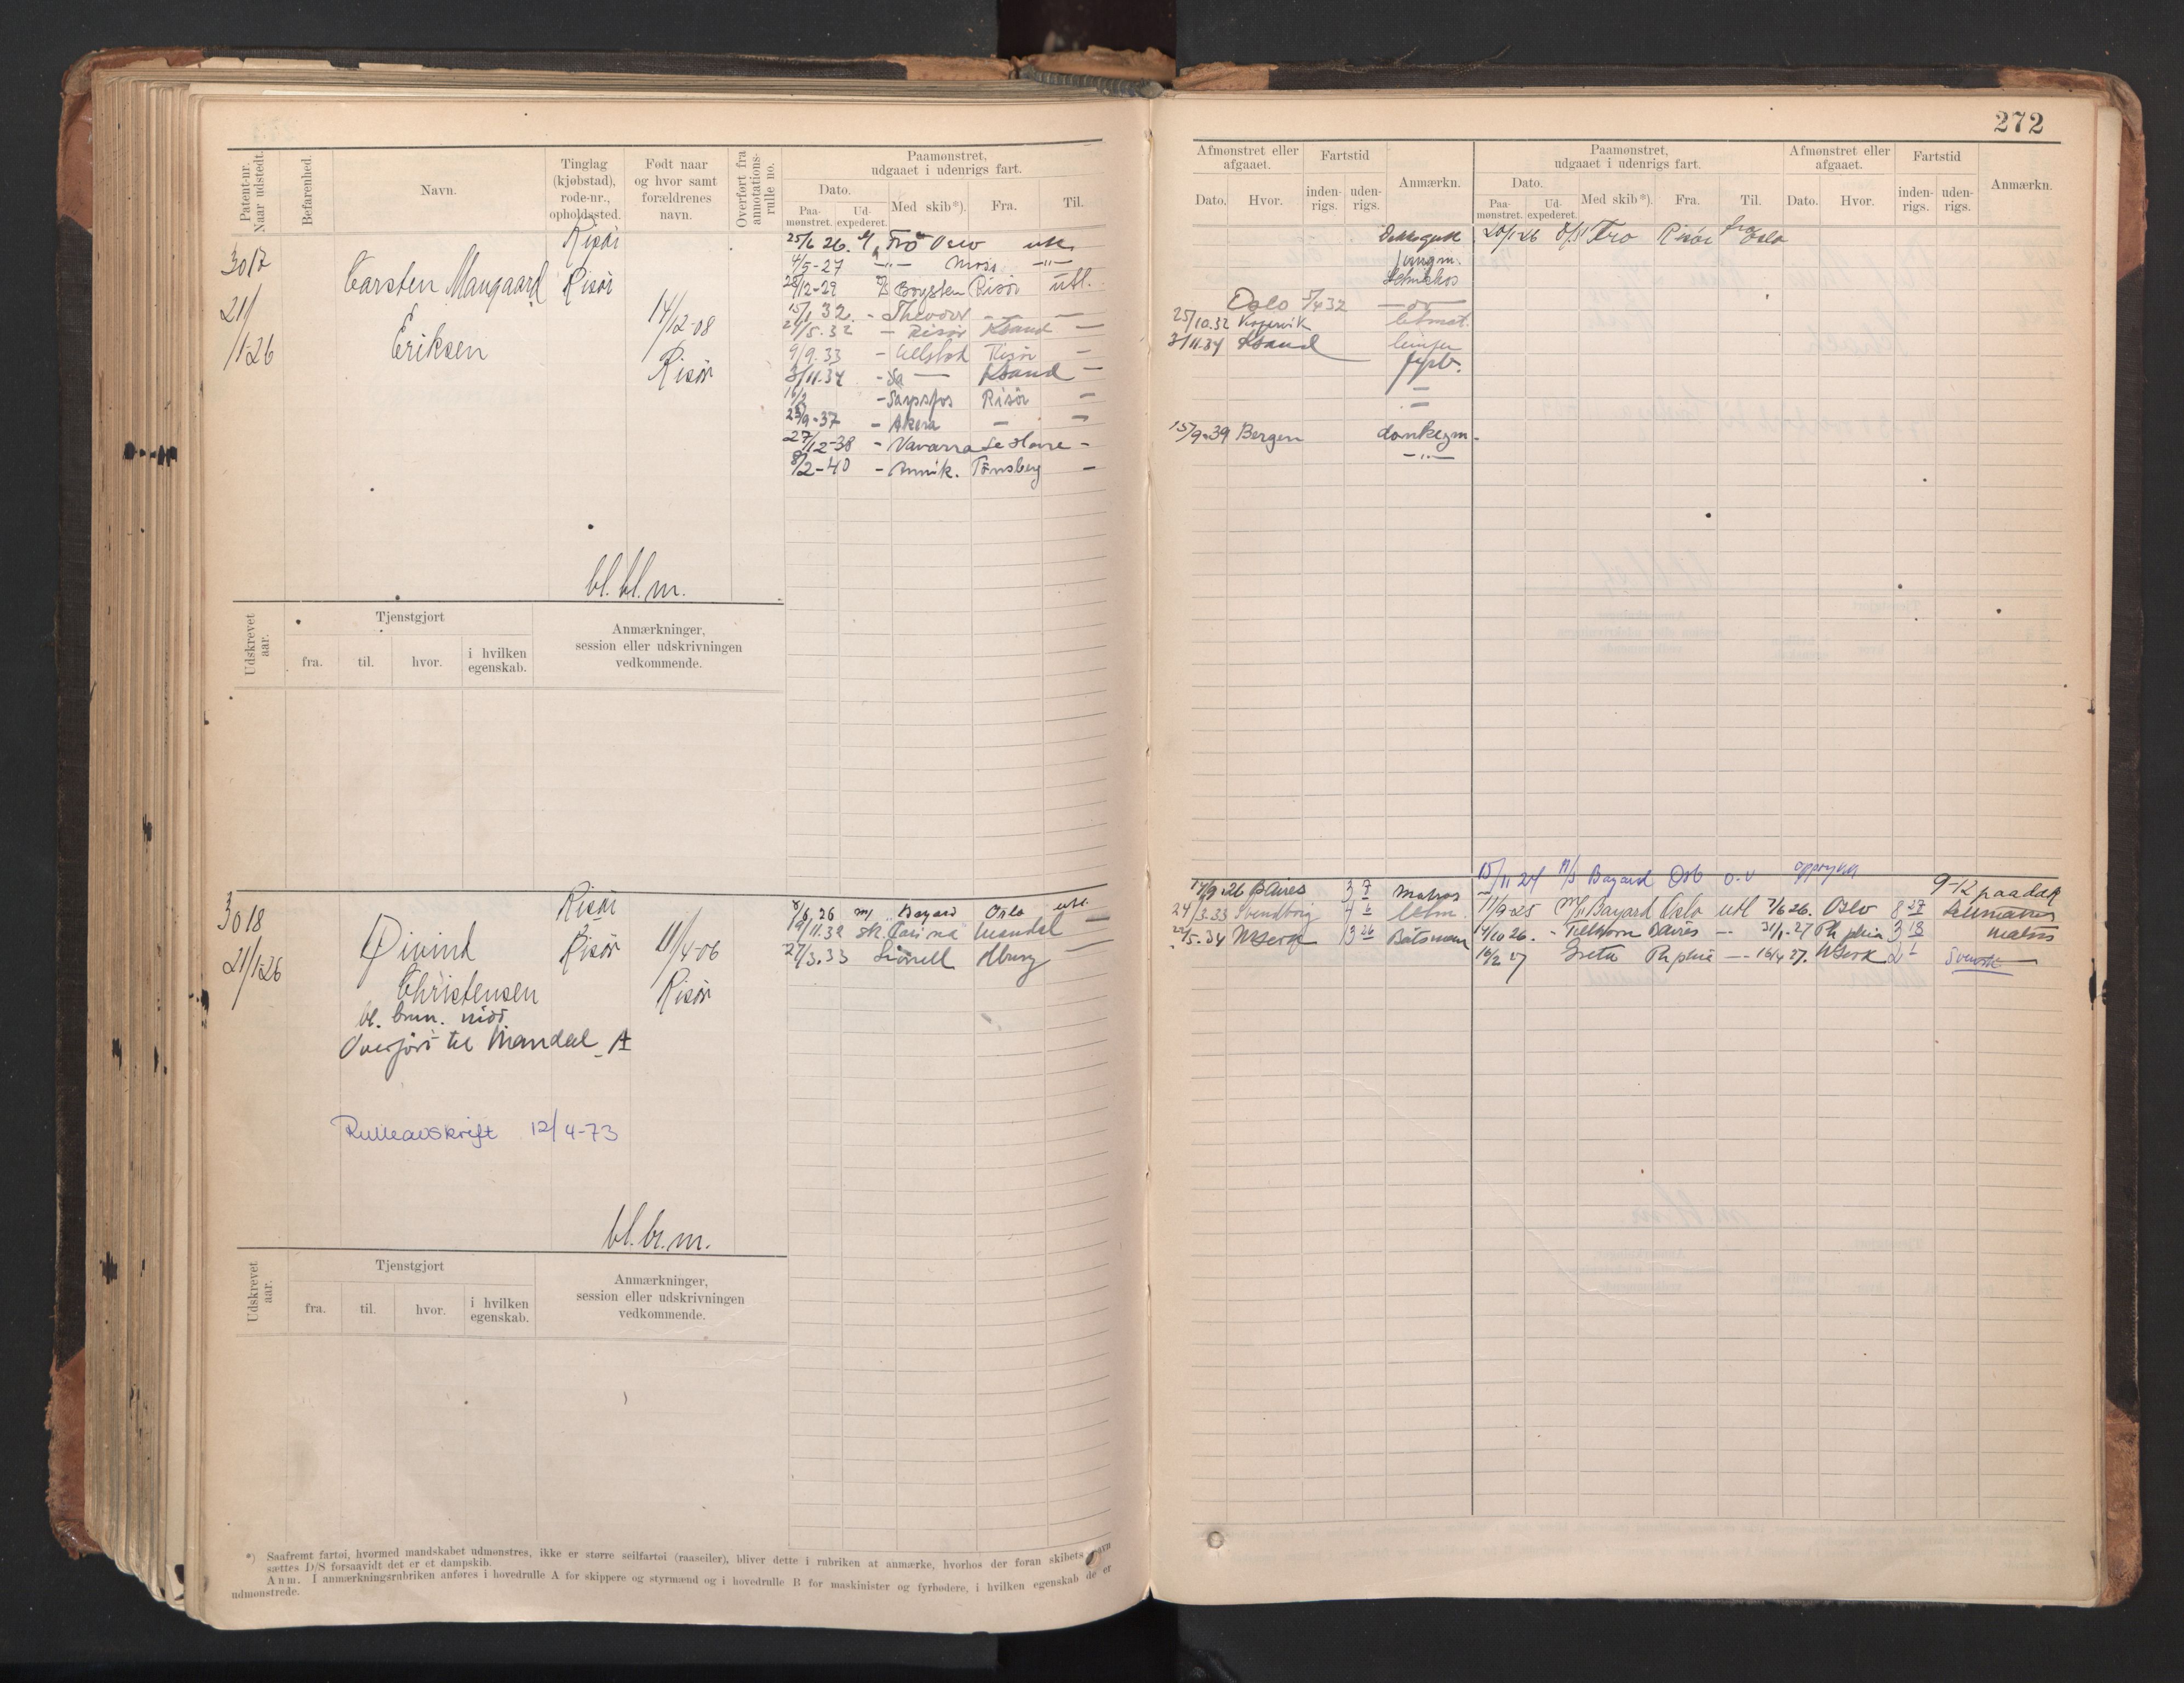 272
Patent-nr. Naar udstedt.
Befarenhed.
Navn.
Tinglag (kjøbstad), rode-nr., opholdssted.
Født naar og hvor samt forældrenes navn.
Overført fra annotations-rulle no.
Paamønstret, udgaaet i udenrigs fart.
Dato.
Paa-mønstret.
Ud-expederet.
Med skib*).
Fra.
Til.
Afmønstret eller afgaaet.
Dato.
Hvor.
Fartstid
inden-rigs.
uden-rigs.
Anmærkn.
Paamønstret, udgaaet i udenrigs fart.
Dato.
Paa-mønstret.
Ud-expederet.
Med skib*).
Fra.
Til.
Afmønstret eller afgaaet.
Dato.
Hvor.
Fartstid
inden-rigs.
uden-rigs.
Anmærkn.
3017
21/1-26
Carsten Mangaard
Eriksen
Risør
Risør
14/12-08
Risør
bl. bl. m.
25/6 26. Fro Oslo utl.
4/5-27 -"- Moss -"-
28/12-29 Borgsten Risør utl.
15/1 32. - Theodor - - -
21/5.32 - Risør Ksand -
9/9.33 - Risør -
3/11.34 - Sa - Ksand -
16/2 - Sarpsfos Risør -
23/9-37 - Akera - -
27/12-38 - Navarra Le Havre -
8/2-40 - Annik. Tønsberg -
Dekksgutt 20/1-26 D/S Fro Risør fra Oslo
Jungm.
Oslo 5/4 32 - do -
25/10.32 Kopervik letmat.
3/11.34 Ksand
fyrb.
-
-
15/9-39 Bergen donkeym.
-"-
Udskrevet aar.
Tjenstgjort
fra.
til.
hvor.
i hvilken egenskab.
Anmærkninger, session eller udskrivningen vedkommende.
3018
21/1-26
Øivind
Christensen
bl. brun. midd
Overført til Mandal A
Rulleavskrift 12/4-73
Risør
Risør
11/4-06
Risør
bl. br. m.
8/6.26 m/ Bayard Oslo utl.
19/11.32 sk. Carina Mandal -
27/3.33 -
15/11 24 M/S Bayard Osl o.v 9-12 paadæk
14/9-26 BAires 3 7 Matros 17/9-25 M/S Bayard Oslo utl 7/6 26. Oslo 8 27
24/3.33 Svendborg 4 6 letm. 14/10 26. - Tellhorn BAires - 31/1-27 Ph phia 3 18 matros
22/5.34 NYork 13 26 Båtsmann 16/2 27 Greta Ph phia - 16/4 27. NYork 2 1 Svensk
Udskrevet aar.
Tjenstgjort
fra.
til.
hvor.
i hvilken egenskab.
Anmærkninger, session eller udskrivningen vedkommende.
*) Saafremt fartøi, hvormed mandskabet udmønstres, ikke er større seilfartøi (raaseiler), bliver dette i rubriken at anmærke, hvorhos der foran skibets navn
sættes D/S forsaavidt det er et dampskib.
Anm. I anmærkningsrubriken anføres i hovedrulle A for skippere og styrmænd og i hovedrulle B for maskinister og fyrbødere, i hvilken egenskab de er
udmønstrede.